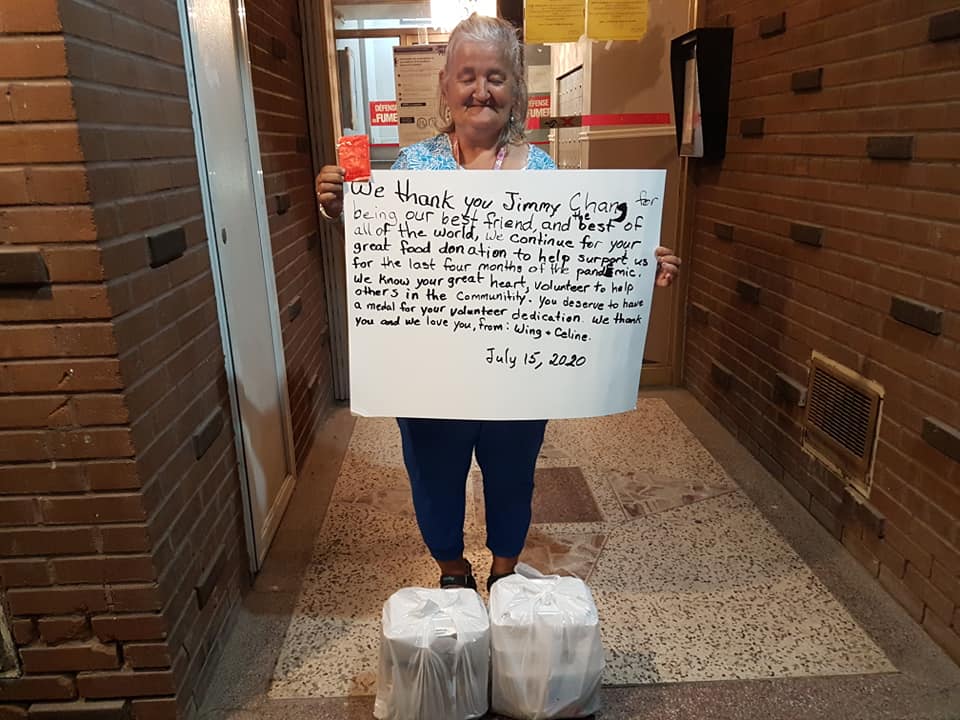 DÉFENSE
DE FUMER
DÉFENSE
FUMER
We thank you Jimmy Chang for
being our best friend, and the best of
all of the world, we continue for your
great food donation to help support us
for the last four months of the pandemic.
We know your great heart, volunteer to help
others in the Communitity. You deserve to have
a medal for your volunteer dedication. We thank
you and we love you, from: Wing + Celine.
July 15, 2020